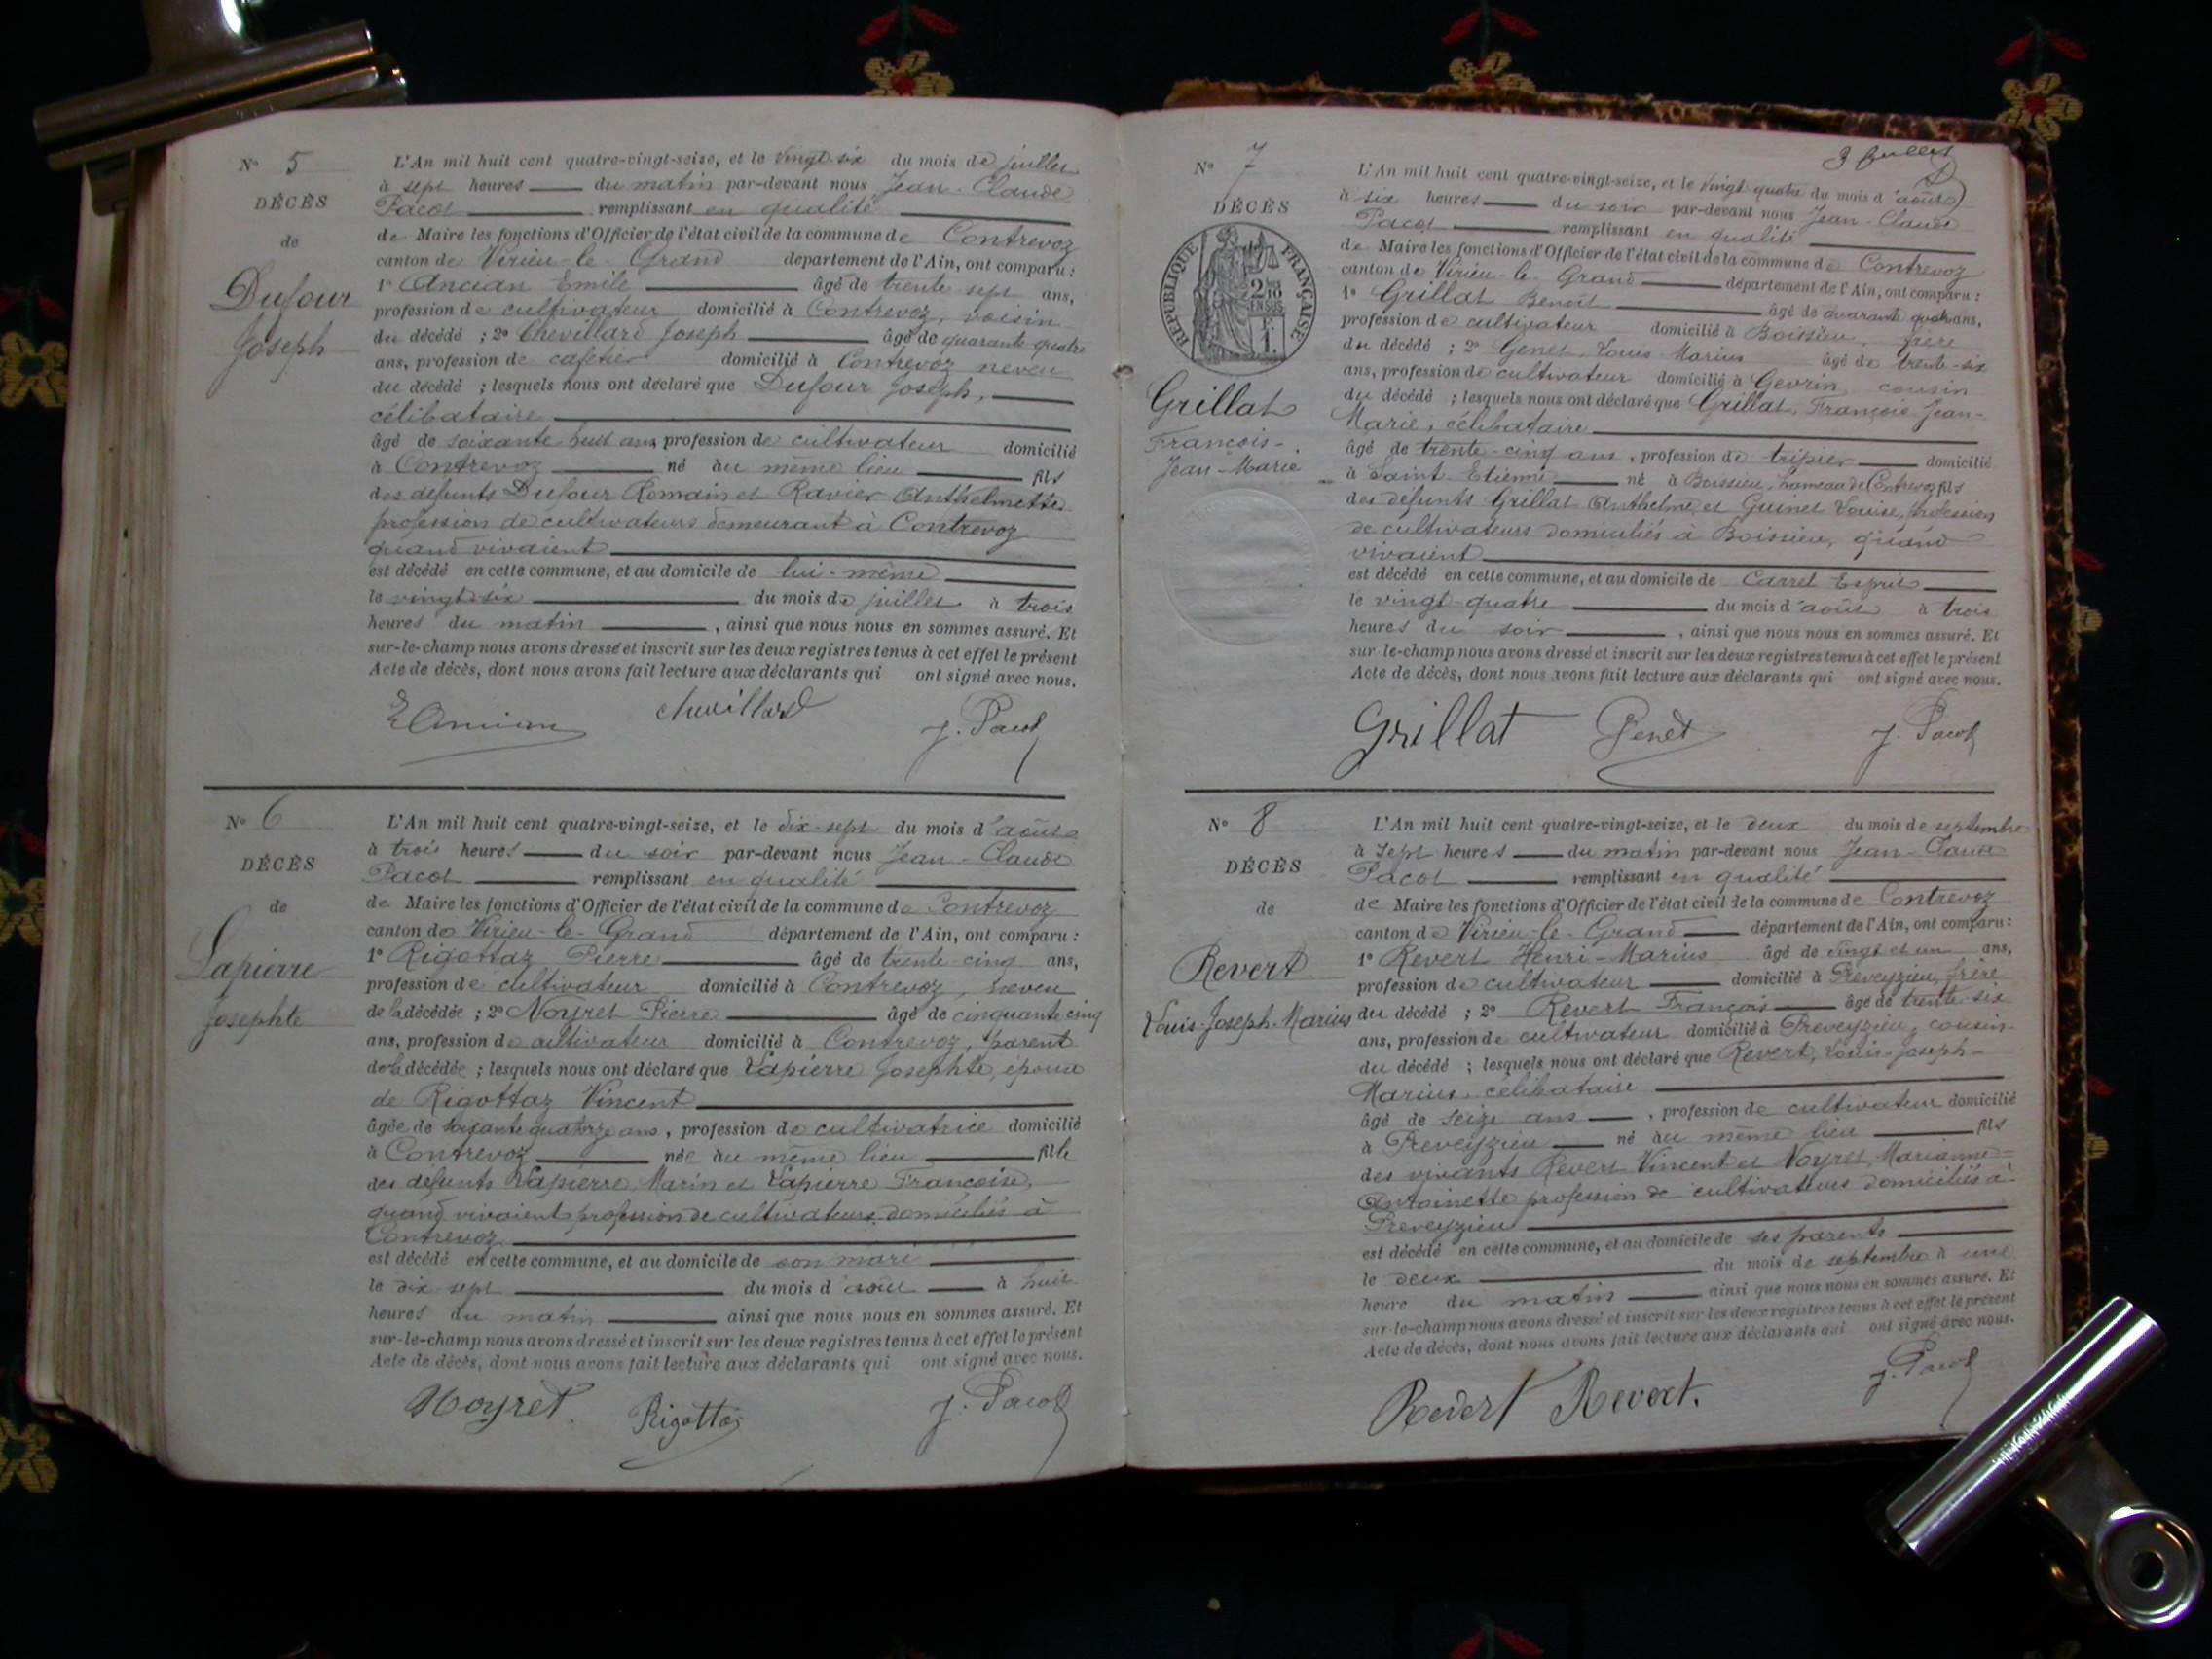 N° 5
DÉCÈS
de
Dufour
Joseph
L'An mil huit cent quatre-vingt-seize, et le vingt six du mois de juillet
à sept heures du matin par-devant nous Jean-Claude
Pacot remplissant en qualité
de Maire les fonctions d'Officier de l'état civil de la commune de Contrevoz
canton de Virieu-le-Grand département de l'Ain, ont comparu :
1° Ancian Emile âgé de trente sept ans,
profession de cultivateur domicilié à Contrevoz, voisin
du décédé ; 2° Chevillard Joseph âgé de quarante quatre
ans, profession de cafetier domicilié à Contrevoz neveu
du décédé ; lesquels nous ont déclaré que Dufour Joseph,
célibataire
âgé de soixante-huit ans, profession de cultivateur domicilié
à Contrevoz né au même lieu fils
des défunts Dufour Romain et Ravier Anthelmette
profession de cultivateurs demeurant à Contrevoz
quand vivaient
est décédé en cette commune, et au domicile de lui-même
le vingt-six du mois de juillet à trois
heures du matin , ainsi que nous nous en sommes assuré. Et
sur-le-champ nous avons dressé et inscrit sur les deux registres tenus à cet effet le présent
Acte de décès, dont nous avons fait lecture aux déclarants qui ont signé avec nous.
EAncian chevillard J. Pacot
N° 6
DÉCÈS
de
Lapierre
Josephte
L'An mil huit cent quatre-vingt-seize, et le dix-sept du mois d'août
à trois heures du soir par-devant nous Jean-Claude
Pacot remplissant en qualité
de Maire les fonctions d'Officier de l'état civil de la commune de Contrevoz
canton de Virieu-le-Grand département de l'Ain, ont comparu :
1° Rigottaz Pierre âgé de trente-cinq ans,
profession de cultivateur domicilié à Contrevoz, neveu
de la décédée ; 2° Noyret Pierre âgé de cinquante cinq
ans, profession de cultivateur domicilié à Contrevoz, parent
de la décédée ; lesquels nous ont déclaré que Lapierre Josephte, épouse
de Rigottaz Vincent
âgée de soixante quatorze ans, profession de cultivatrice domicilié
à Contrevoz née au même lieu fille
des défunts Lapierre Marin et Lapierre Françoise,
quand vivaient profession de cultivateurs domiciliés à
Contrevoz
est décédé en cette commune, et au domicile de son mari
le dix sept du mois d'août à huit
heures du matin ainsi que nous nous en sommes assuré. Et
sur-le-champ nous avons dressé et inscrit sur les deux registres tenus à cet effet le présent
Acte de décès, dont nous avons fait lecture aux déclarants qui ont signé avec nous.
Noyret. Rigottaz J. Pacot
3
N° 7
DÉCÈS
RÉPUBLIQUE FRANÇAISE
2/10 EN SUS
1 F.
Grillat
François-
Jean-Marie
L'An mil huit cent quatre-vingt-seize, et le vingt quatre du mois d'août
à six heures du soir par-devant nous Jean-Claude
Pacot remplissant en qualité
de Maire les fonctions d'Officier de l'état civil de la commune de Contrevoz
canton de Virieu-le-Grand département de l'Ain, ont comparu :
1° Grillat Benoît âgé de quarante quatre ans,
profession de cultivateur domicilié à Boissieu, frère
du décédé ; 2° Genet, Louis Marius âgé de trente-six
ans, profession de cultivateur domicilié à Gevrin cousin
du décédé ; lesquels nous ont déclaré que Grillat, François Jean-
Marie, célibataire
âgé de trente-cinq ans, profession de tripier domicilié
à Saint-Etienne né à Boissieu, hameau de Contrevoz fils
des défunts Grillat Anthelme et Guinet Louise, profession
de cultivateurs domiciliés à Boissieu, quand
vivaient
est décédé en cette commune, et au domicile de Carrel Esprit
le vingt-quatre du mois d'août à trois
heures du soir , ainsi que nous nous en sommes assuré. Et
sur-le-champ nous avons dressé et inscrit sur les deux registres tenus à cet effet le présent
Acte de décès, dont nous avons fait lecture aux déclarants qui ont signé avec nous.
Grillat Genet J. Pacot
N° 8
DÉCÈS
de
Revert
Louis-Joseph-Marius
L'An mil huit cent quatre-vingt-seize, et le deux du mois de septembre
à sept heures du matin par-devant nous Jean-Claude
Pacot remplissant en qualité
de Maire les fonctions d'Officier de l'état civil de la commune de Contrevoz
canton de Virieu-le-Grand département de l'Ain, ont comparu :
1° Revert Henri-Marius âgé de vingt et un ans,
profession de cultivateur domicilié à Preveyzieu, frère
du décédé ; 2° Revert François âgé de trente-six
ans, profession de cultivateur domicilié à Preveyzieu, cousin
du décédé ; lesquels nous ont déclaré que Revert, Louis-Joseph-
Marius, célibataire
âgé de seize ans , profession de cultivateur domicilié
à Preveyzieu né au même lieu fils
des vivants Revert Vincent et Noyret, Marianne-
Antoinette profession de cultivateurs domiciliés à
Preveyzieu
est décédé en cette commune, et au domicile de ses parents
le deux du mois de septembre à une
heure du matin ainsi que nous nous en sommes assuré. Et
sur-le-champ nous avons dressé et inscrit sur les deux registres tenus à cet effet le présent
Acte de décès, dont nous avons fait lecture aux déclarants qui ont signé avec nous.
Revert Revert. J. Pacot